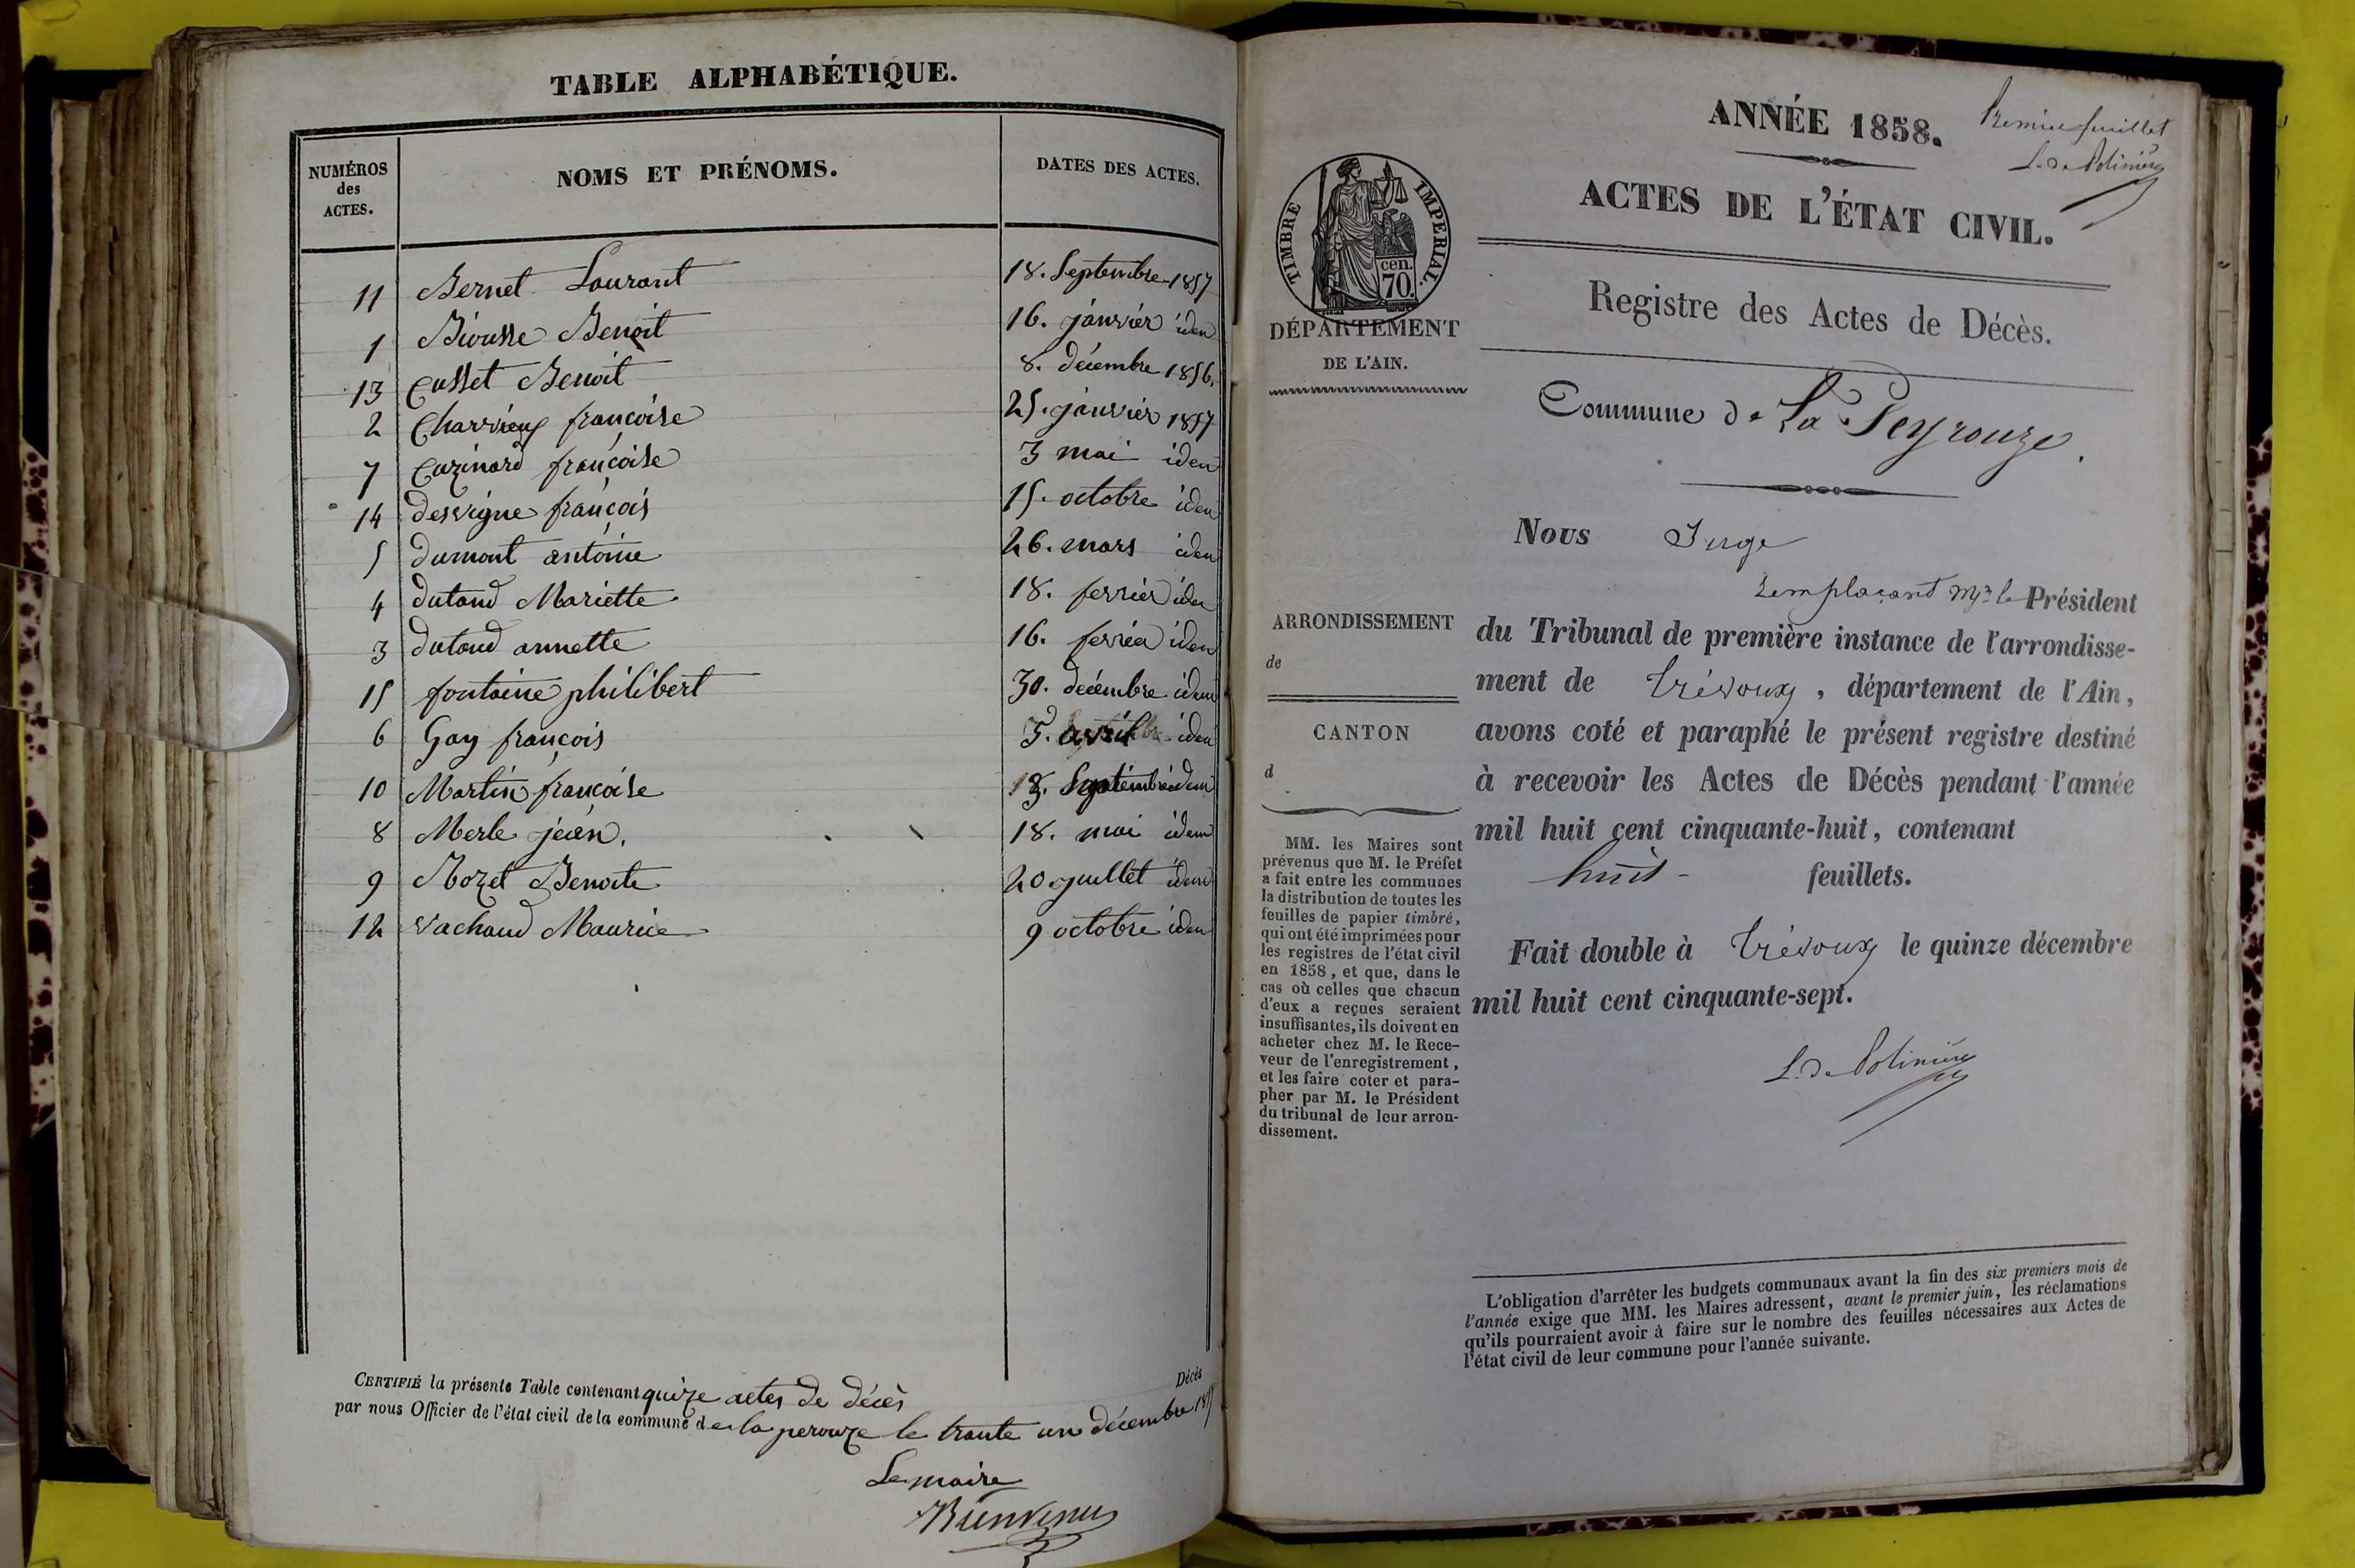 TABLE ALPHABÉTIQUE.
NUMÉROS des ACTES. NOMS ET PRÉNOMS. DATES DES ACTES.
11 Bernet Laurant 18. Septembre 1857
1 Biousse Benoit 16. janvier idem
13 Cusset Benoit 8. décembre 1856.
2 Charvieux françoise 25. janvier 1857
7 Cozinard françoise 3 mai idem
14 desvigne françois 15. octobre idem
5 dumont antoine 26. mars idem
4 dutaud Mariette 18. ferrier idem
3 dutaud annette 16. idem
15 fontaine philibert 30. décembre idem
6 Gay françois 5. avril idem
10 Martin françoise Septembre idem
8 Merle jean. 18. mai idem
9 Rozet Benoite 20 juillet idem
12 vachaud Maurice 9 octobre idem
Décès
CERTIFIÉ la présente Table contenant quize actes de décès
par nous Officier de l'état civil de la commune de la perouze le trante un décembre 1857
Le maire
Bienvenu
ANNÉE 1858.
Premier feuillet
L. de Polinière
ACTES DE L'ÉTAT CIVIL.
TIMBRE IMPERIAL.
cen.
70.
DÉPARTEMENT
DE L'AIN.
Registre des Actes de Décès.
Commune de La Peyrouze.
ARRONDISSEMENT
de
CANTON
d
MM. les Maires sont
prévenus que M. le Préfet
a fait entre les communes
la distribution de toutes les
feuilles de papier timbré,
qui ont été imprimées pour
les registres de l'état civil
en 1858, et que, dans le
cas où celles que chacun
d'eux a reçues seraient
insuffisantes, ils doivent en
acheter chez M. le Rece-
veur de l'enregistrement,
et les faire coter et para-
pher par M. le Président
du tribunal de leur arron-
dissement.
Nous Juge
remplaçant Mr. le Président
du Tribunal de première instance de l'arrondisse-
ment de Trévoux, département de l'Ain,
avons coté et paraphé le présent registre destiné
à recevoir les Actes de Décès pendant l'année
mil huit cent cinquante-huit, contenant
huit - feuillets.
Fait double à Trévoux le quinze décembre
mil huit cent cinquante-sept.
L. de Polinière
L'obligation d'arrêter les budgets communaux avant la fin des six premiers mois de
l'année exige que MM. les Maires adressent, avant le premier juin, les réclamations
qu'ils pourraient avoir à faire sur le nombre des feuilles nécessaires aux Actes de
l'état civil de leur commune pour l'année suivante.